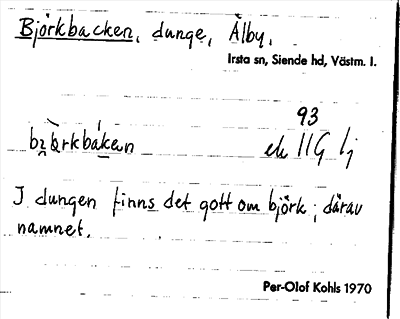 Björkbacken, dunge, Älby.
Irsta sn, Siende hd, Västm. l.
93
ek 11G lj
I dungen finns det gott om björk; därav
namnet.
Per-Olof Kohls 1970